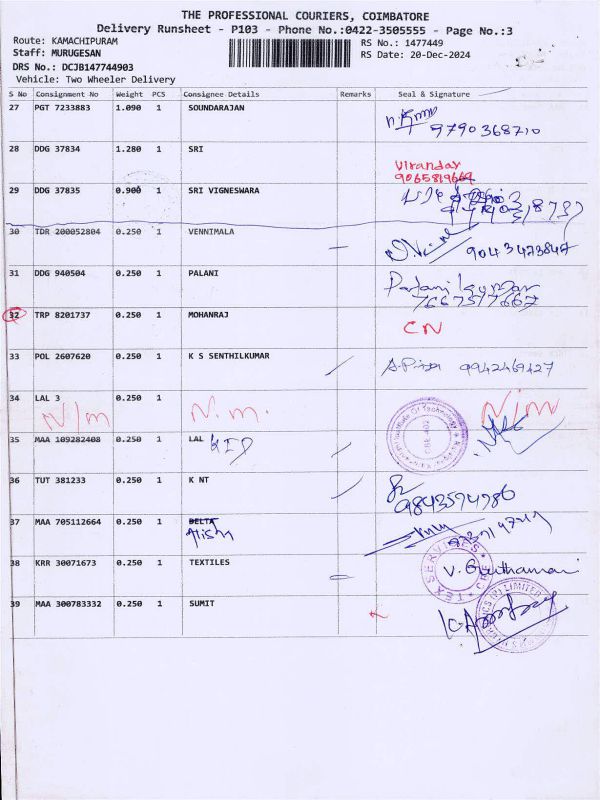 THE PROFESSIONAL COURIERS, COIMBATORE
Delivery Runsheet - P103 - Phone No.:0422-3505555 - Page No.:3
Route: KAMACHIPURAM RS No.: 1477449
Staff: MURUGESAN RS Date: 20-Dec-2024
DRS No.: DCJB147744903
Vehicle: Two Wheeler Delivery
S No Consignment No Weight PCS Consignee Details Remarks Seal & Signature
27 PGT 7233883 1.090 1 SOUNDARAJAN
9790368710
28 DDG 37834 1.280 1 SRI
Virandar
9065819664
29 DDG 37835 0.900 1 SRI VIGNESWARA
30 TDR 200052804 0.250 1 VENNIMALA
9043473847
31 DDG 940504 0.250 1 PALANI
7667577667
32 TRP 8201737 0.250 1 MOHANRAJ
CN
33 POL 2607620 0.250 1 K S SENTHILKUMAR
9942469427
34 LAL 3 0.250 1
N/m N.m. N/m
35 MAA 109282408 0.250 1 LAL
36 TUT 381233 0.250 1 K NT
9843594986
37 MAA 705112664 0.250 1 DELTA
38 KRR 30071673 0.250 1 TEXTILES
39 MAA 300783332 0.250 1 SUMIT